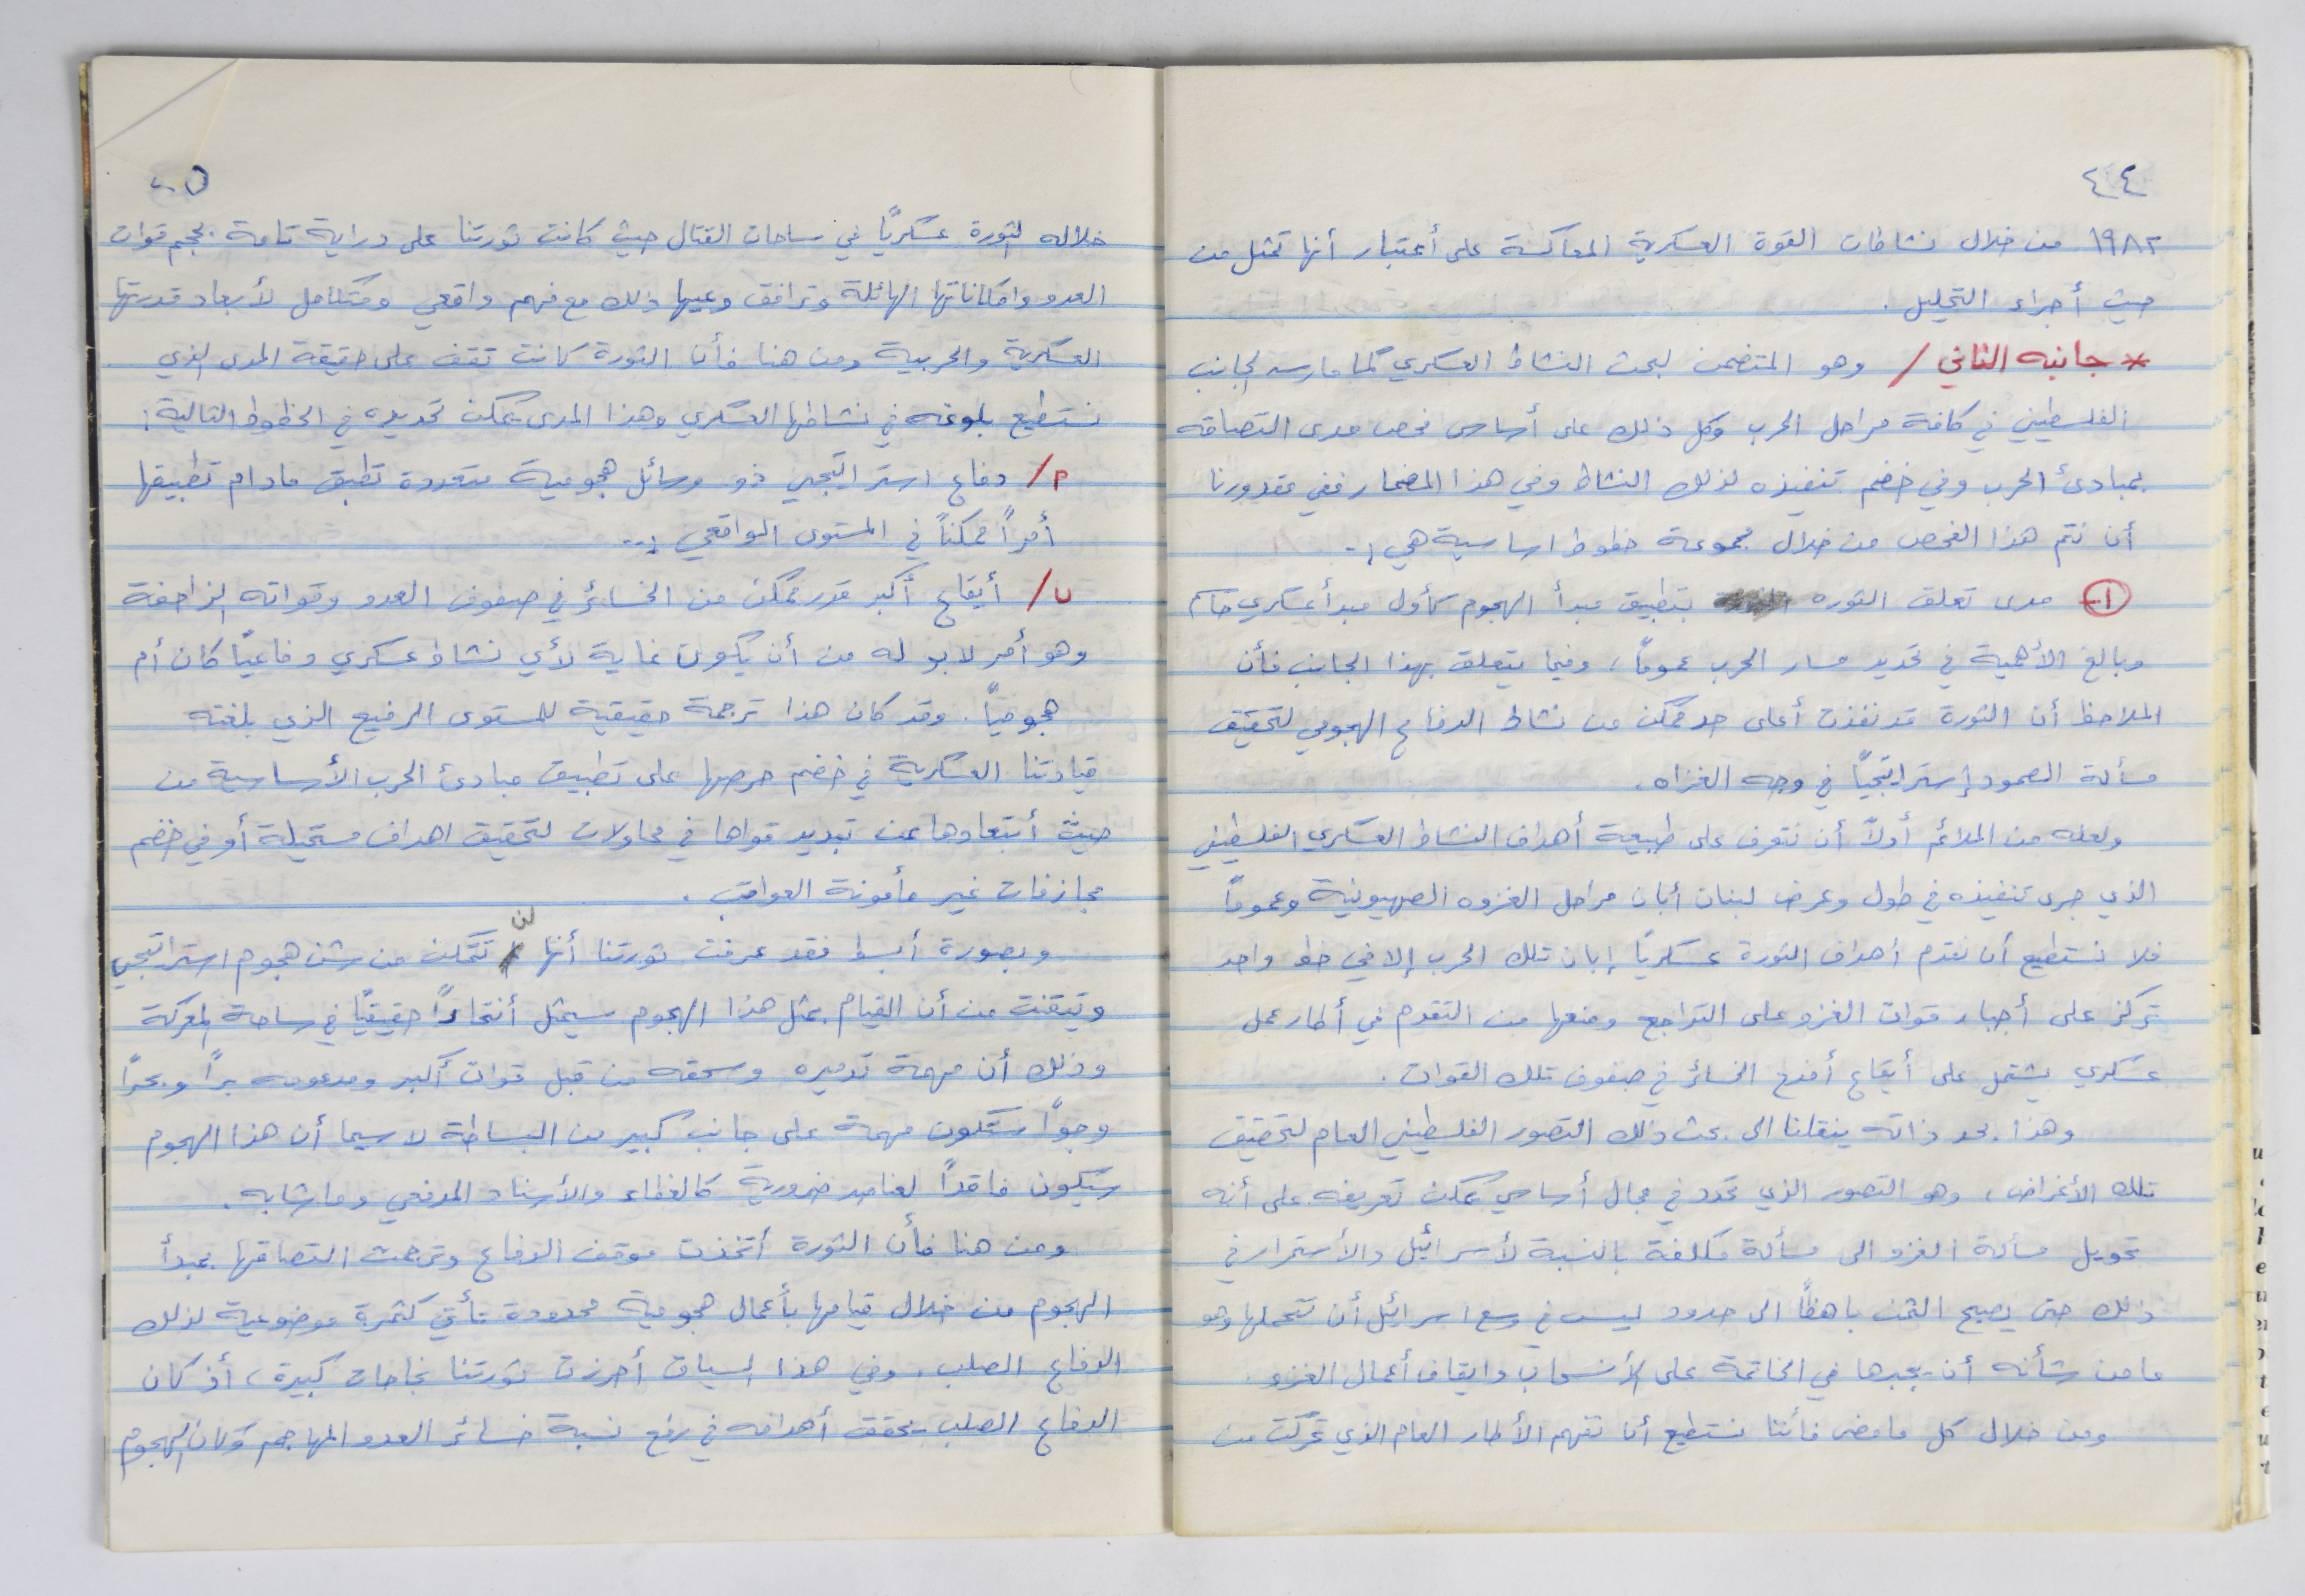 ٤٤
١٩٨٢ من خلال نشاطات القوة العسكرية المعاكسة على أعتبار أنها تمثل من
حيث أجراء التحليل .
* جانبه الثاني / وهو المتضمن لبحث النشاط العسكري كما مارسه الجانب
الفلسطيني في كافة مراحل الحرب وكل ذلك على أساس فحص مدى التصاقه
بمبادئ الحرب وفي خضم تنفيذه لذلك النشاط وفي هذا المضمار ففي مقدورنا
أن نتم هذا الفحص من خلال مجموعة خطوط اساسية هي :-
١- مدى تعلق الثوره بتطبيق مبدأ الهجوم كأول مبدأ عسكري حاسم
وبالغ الأهمية في تحديد مسار الحرب عموماً ، وفيما يتعلق بهذا الجانب فأن
الملاحظ أن الثورة قد نفذت أعلى حد ممكن من نشاط الدفاع الهجومي لتحقيق
مسألة الصمود إستراتيجياً في وجه الغزاه .
ولعله من الملائم أولاً أن نتعرف على طبيعة أهداف النشاط العسكري الفلسطيني
الذي جرى تنفيذه في طول وعرض لبنان أبان مراحل الغزوه الصهيونية وعموماً
فلا نستطيع أن نقدم أهداف الثورة عسكرياً إبان تلك الحرب إلا في خط واحد
تركز على أجبار قوات الغزو على التراجع ومنعها من التقدم في أطار عمل
عسكري يشتمل على أيقاع أفدح الخسائر في صفوف تلك القوات .
وهذا بحد ذاته ينقلنا الى بحث ذلك التصور الفلسطيني العام لتحقيق
تلك الأغراض ، وهو التصور الذي تحدد في مجال أساسي يمكن تعريفه على أنه
تحويل مسألة الغزو الى مسألة مكلفة بالنسبة لأسرائيل والأستمرار في
ذلك حتى يصبح الثمن باهظاً الى حدود ليس في وسع اسرائيل أن تتحملها وهو
ما من شأنه أن يجبرها في الخاتمة على الأنسحاب وايقاف أعمال الغزو .
ومن خلال كل ما مضى فأننا نستطيع أن نفهم الأطار العام الذي تحركت من
٤٥
خلاله الثورة عسكرياً في ساحات القتال حيث كانت ثورتنا على دراية تامة بحجم قوات
العدو وامكاناتها الهائلة وترافق وعيها ذلك مع فهم واقعي ومتكامل لأبعاد قدرتها
العسكرية والحربية ومن هنا فأن الثورة كانت تقف على حقيقة المدى الذي
تستطيع بلوغه في نشاطها العسكري وهذا المدى يمكن تحديده في الخطوط التالية :
م/ دفاع استراتيجي ذو وسائل هجومية متعددة تطبق مادام تطبيقها
أمراً ممكناً في المستوى الواقعي :-
ب/ أيقاع أكبر قدر ممكن من الخسائر في صفوف العدو وقواته الزاحفة
وهو أمر لابد له من أن يكون غاية لأي نشاط عسكري دفاعياً كان أم
هجومياً . وقد كان هذا ترجمة حقيقية للمستوى الرفيع الذي بلغته
قيادتنا العسكرية في خضم حرصها على تطبيق مبادئ الحرب الأساسية من
حيث أبتعادها عن تبديد قواها في محاولات لتحقيق اهداف مستحيلة أو في خضم
مجازفات غير مأمونة العواقب .
وبصورة أبسط فقد عرفت ثورتنا أنها لن تتمكن من شن هجوم استراتيجي
وتيقنت من أن القيام بمثل هذا الهجوم سيمثل أنتحاراً حقيقياً في ساحة المعركة
وذلك أن مهمة تدميره وسحقه من قبل قوات أكبر ومدعومه براً وبحراً
وجواً ستكون مهمة على جانب كبير من البساطة لاسيما أن هذا الهجوم
سيكون فاقداً لعناصر ضرورية كالغطاء والأسناد المدفعي وما شابه .
ومن هنا فأن الثورة أتخذت موقف الدفاع وترجمت التصاقها بمبدأ
الهجوم من خلال قيامها بأعمال هجومية محدودة تأتي كثمرة موضوعية لذلك
الدفاع الصلب . وفي هذا السياق أحرزت ثورتنا نجاحات كبيرة ، أذ كان
الدفاع الصلب يحقق أهدافه في رفع نسبة خسائر العدو المهاجم وكان الهجوم